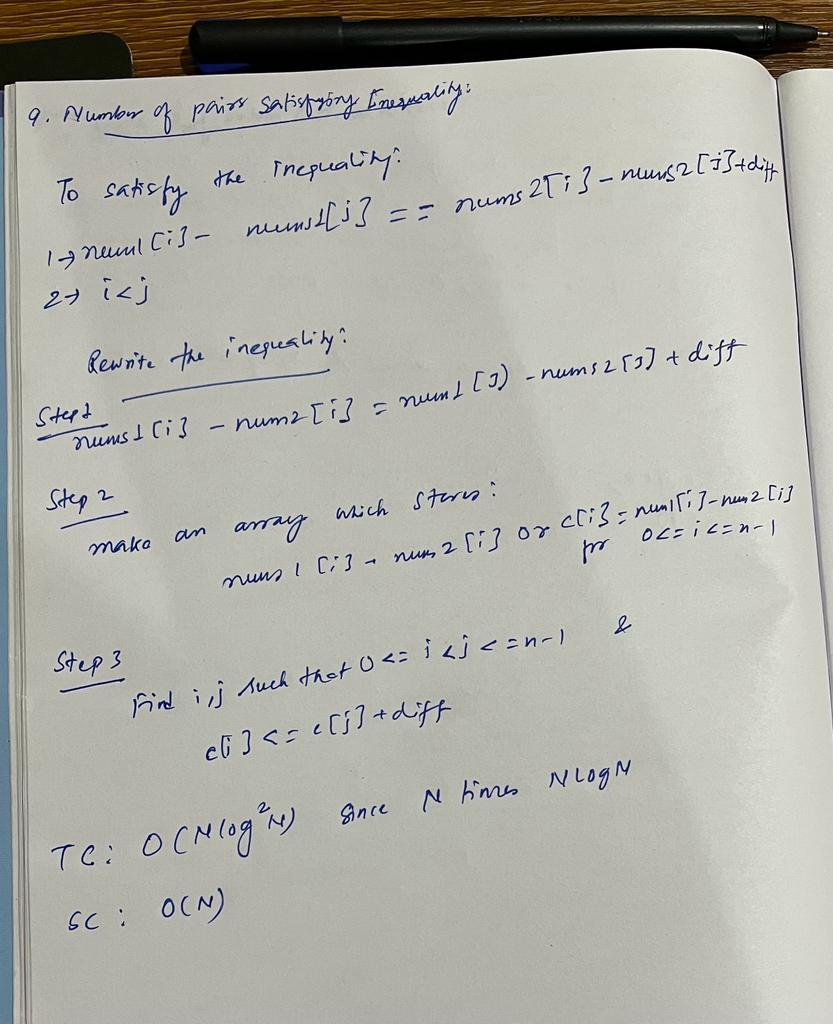 9. Number of pairs Satisfying Inequality:
To satisfy the Inequality:
1→ num1[i] - nums1[j] == nums2[i] - nums2[j]+diff
2→ i<j
Rewrite the inequality:
Step1
nums1[i] - num2[i] = num1[j) - nums2[j] + diff
Step 2
make an array which stores:
nums1[i] - nums2[i] or c[i] = num1[i]-num2[i]
for 0<=i<=n-1
Step 3
Find i,j such that 0<= i<j<=n-1 &
c[i] <= c[j]+diff
TC: O(Nlog²N) Since N times NLogN
SC: O(N)